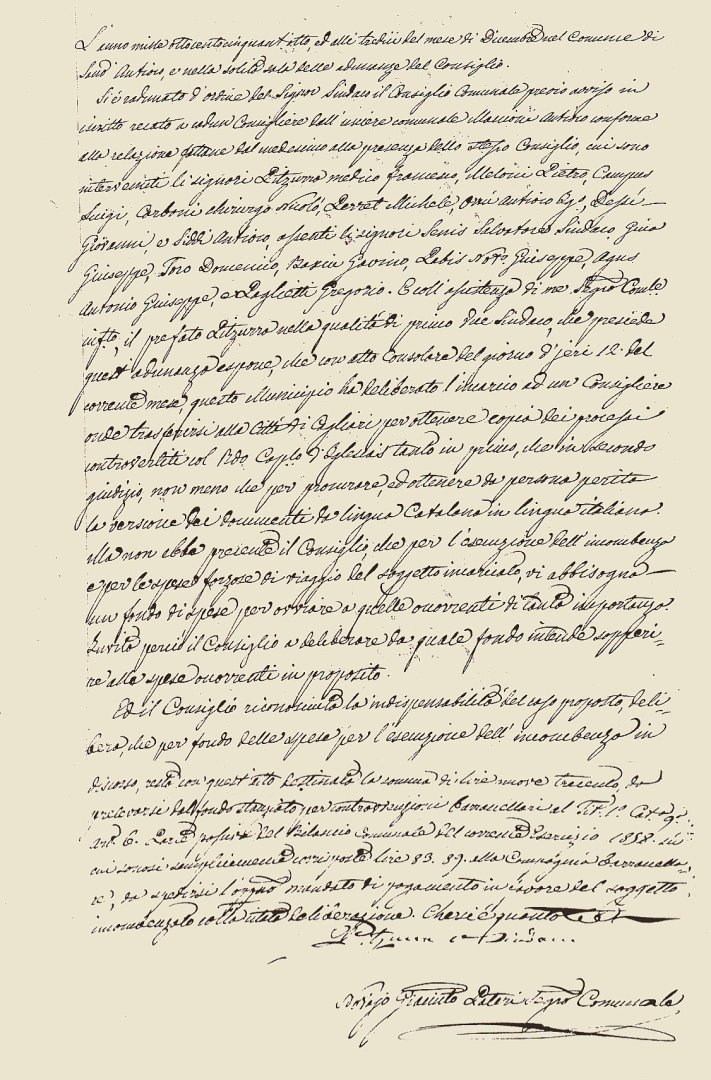 L'anno mille ottocento cinquant'otto, ed alli tredici del mese di Dicembre nel Comune di
Sant' Antioco, e nella solita sala delle adunanze del Consiglio.
Si è radunato d'ordine del Signor Sindaco il Consiglio Comunale previo avviso in
iscritto recato a cadun Consigliere dall'usciere comunale Massioni Antioco conforme
alla relazione fattane dal medesimo alla presenza dello stesso Consiglio, cui sono
intervenuti li signori Pitzurra medico Francesco, Meloni Pietro, Campus
Luigi, Carboni chirurgo Nicolò, Perret Michele, Orrù Antioco Ego, Dessi
Giovanni, e Siddi Antioco, assenti li signori Senis Salvatore Sindaco, Giua
Giuseppe, Toro Domenico, Basciu Gavino, Labis Not.o Giuseppe, Agus
Antonio Giuseppe, e Paglietti Gregorio. E coll'assistenza di me Segro Comle
infto, il prefato Pitzurra nella qualità di primo Vice Sindaco, che presiede
quest'adunanza espone, che con atto Consolare del giorno d'jeri 12 del
corrente mese, questo Municipio ha deliberato l'incarico ad un Consigliere
onde trasferirsi alla Città di Cagliari per ottenere copia dei processi
controvertiti col Rdo Caplo d'Iglesias tanto in primo, che in secondo
giudizio, non meno che per procurare, ed ottenere da persona perita
la versione dei documenti da lingua Catalana in lingua italiana.
Ma non ebbe presente il Consiglio che per l'esecuzione dell'incombenza
e per le spese forzose di viaggio del soggetto incaricato, vi abbisogna
un fondo di spese per ovviare a quelle occorrenti di tanta importanza.
Invita perciò il Consiglio a deliberare da quale fondo intende sopperi-
re alle spese occorrenti in proposito.
Ed il Consiglio riconosciuta la indispensabilità del caso proposto, deli-
bera, che per fondo delle spese per l'esecuzione dell'incombenza in
discorso, resta con quest'atto destinata la somma di lire nuove trecento, da
prelevarsi dal fondo stanziato per controvenzioni barracellari al Tit. 1.° Cat.a 9.a
art. 6. Parte passiva del Bilancio Comunale del corrente Esercizio 1858. in
cui sonosi semplicemente corrisposte lire 83. 89. alla Compagnia barracella-
re, da spedirsi l'opp.no mandato di pagamento in favore del soggetto
incombenzato colla citata deliberazione. Che ciò è quanto
Notajo Giacinto Segro Comunale